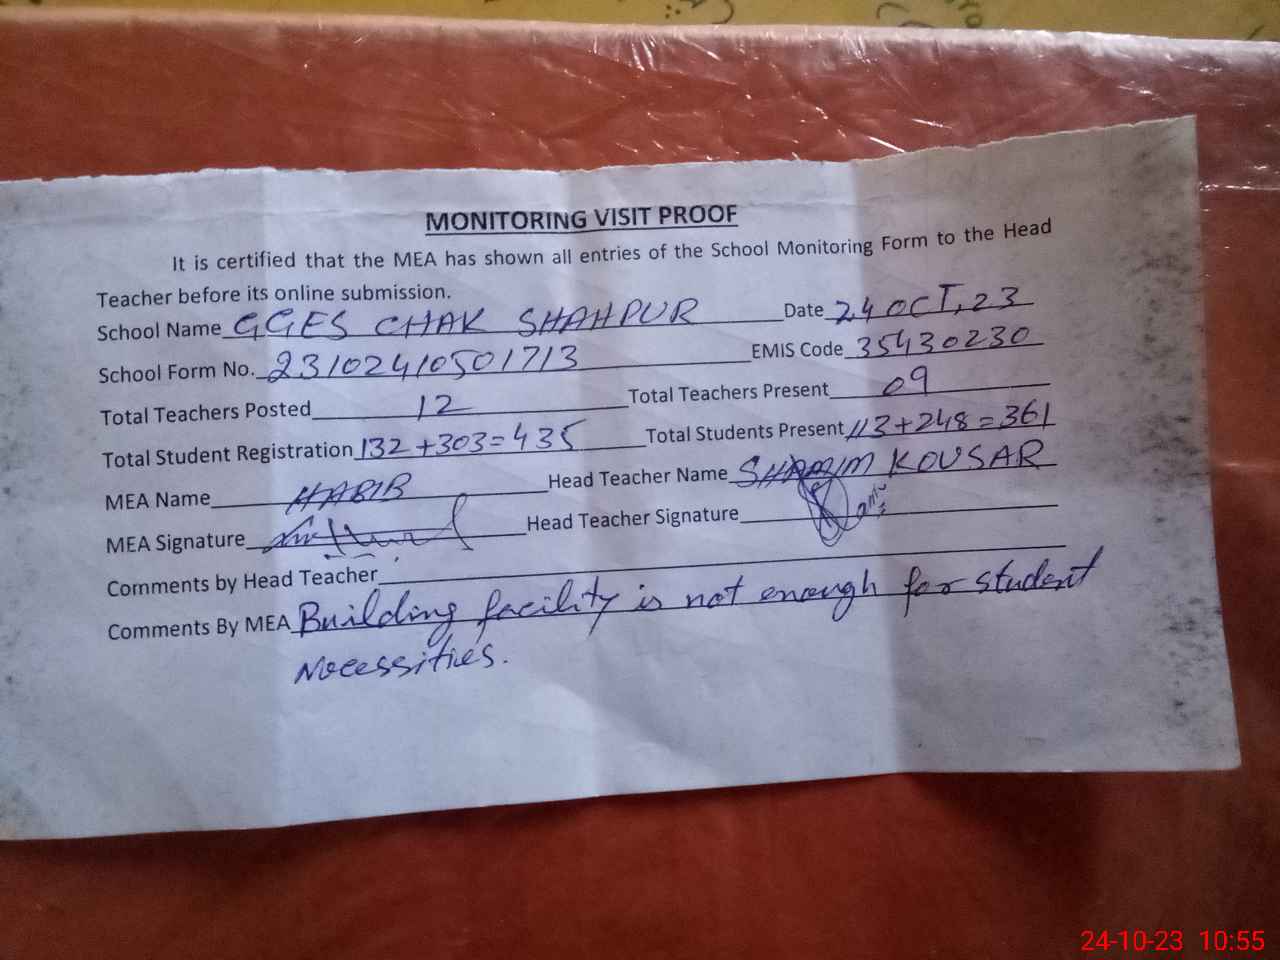 MONITORING VISIT PROOF
It is certified that the MEA has shown all entries of the School Monitoring Form to the Head
Teacher before its online submission.
School Name GGES CHAK SHAHPUR Date 24 OCT, 23
School Form No. 23102410501713 EMIS Code 35430230
Total Teachers Posted 12 Total Teachers Present 09
Total Student Registration 132+303=435 Total Students Present 113+248=361
MEA Name HABIB Head Teacher Name SHAMIM KOUSAR
MEA Signature Head Teacher Signature
Comments by Head Teacher
Comments By MEA Building facility is not enough for student
Necessities.
24-10-23 10:55